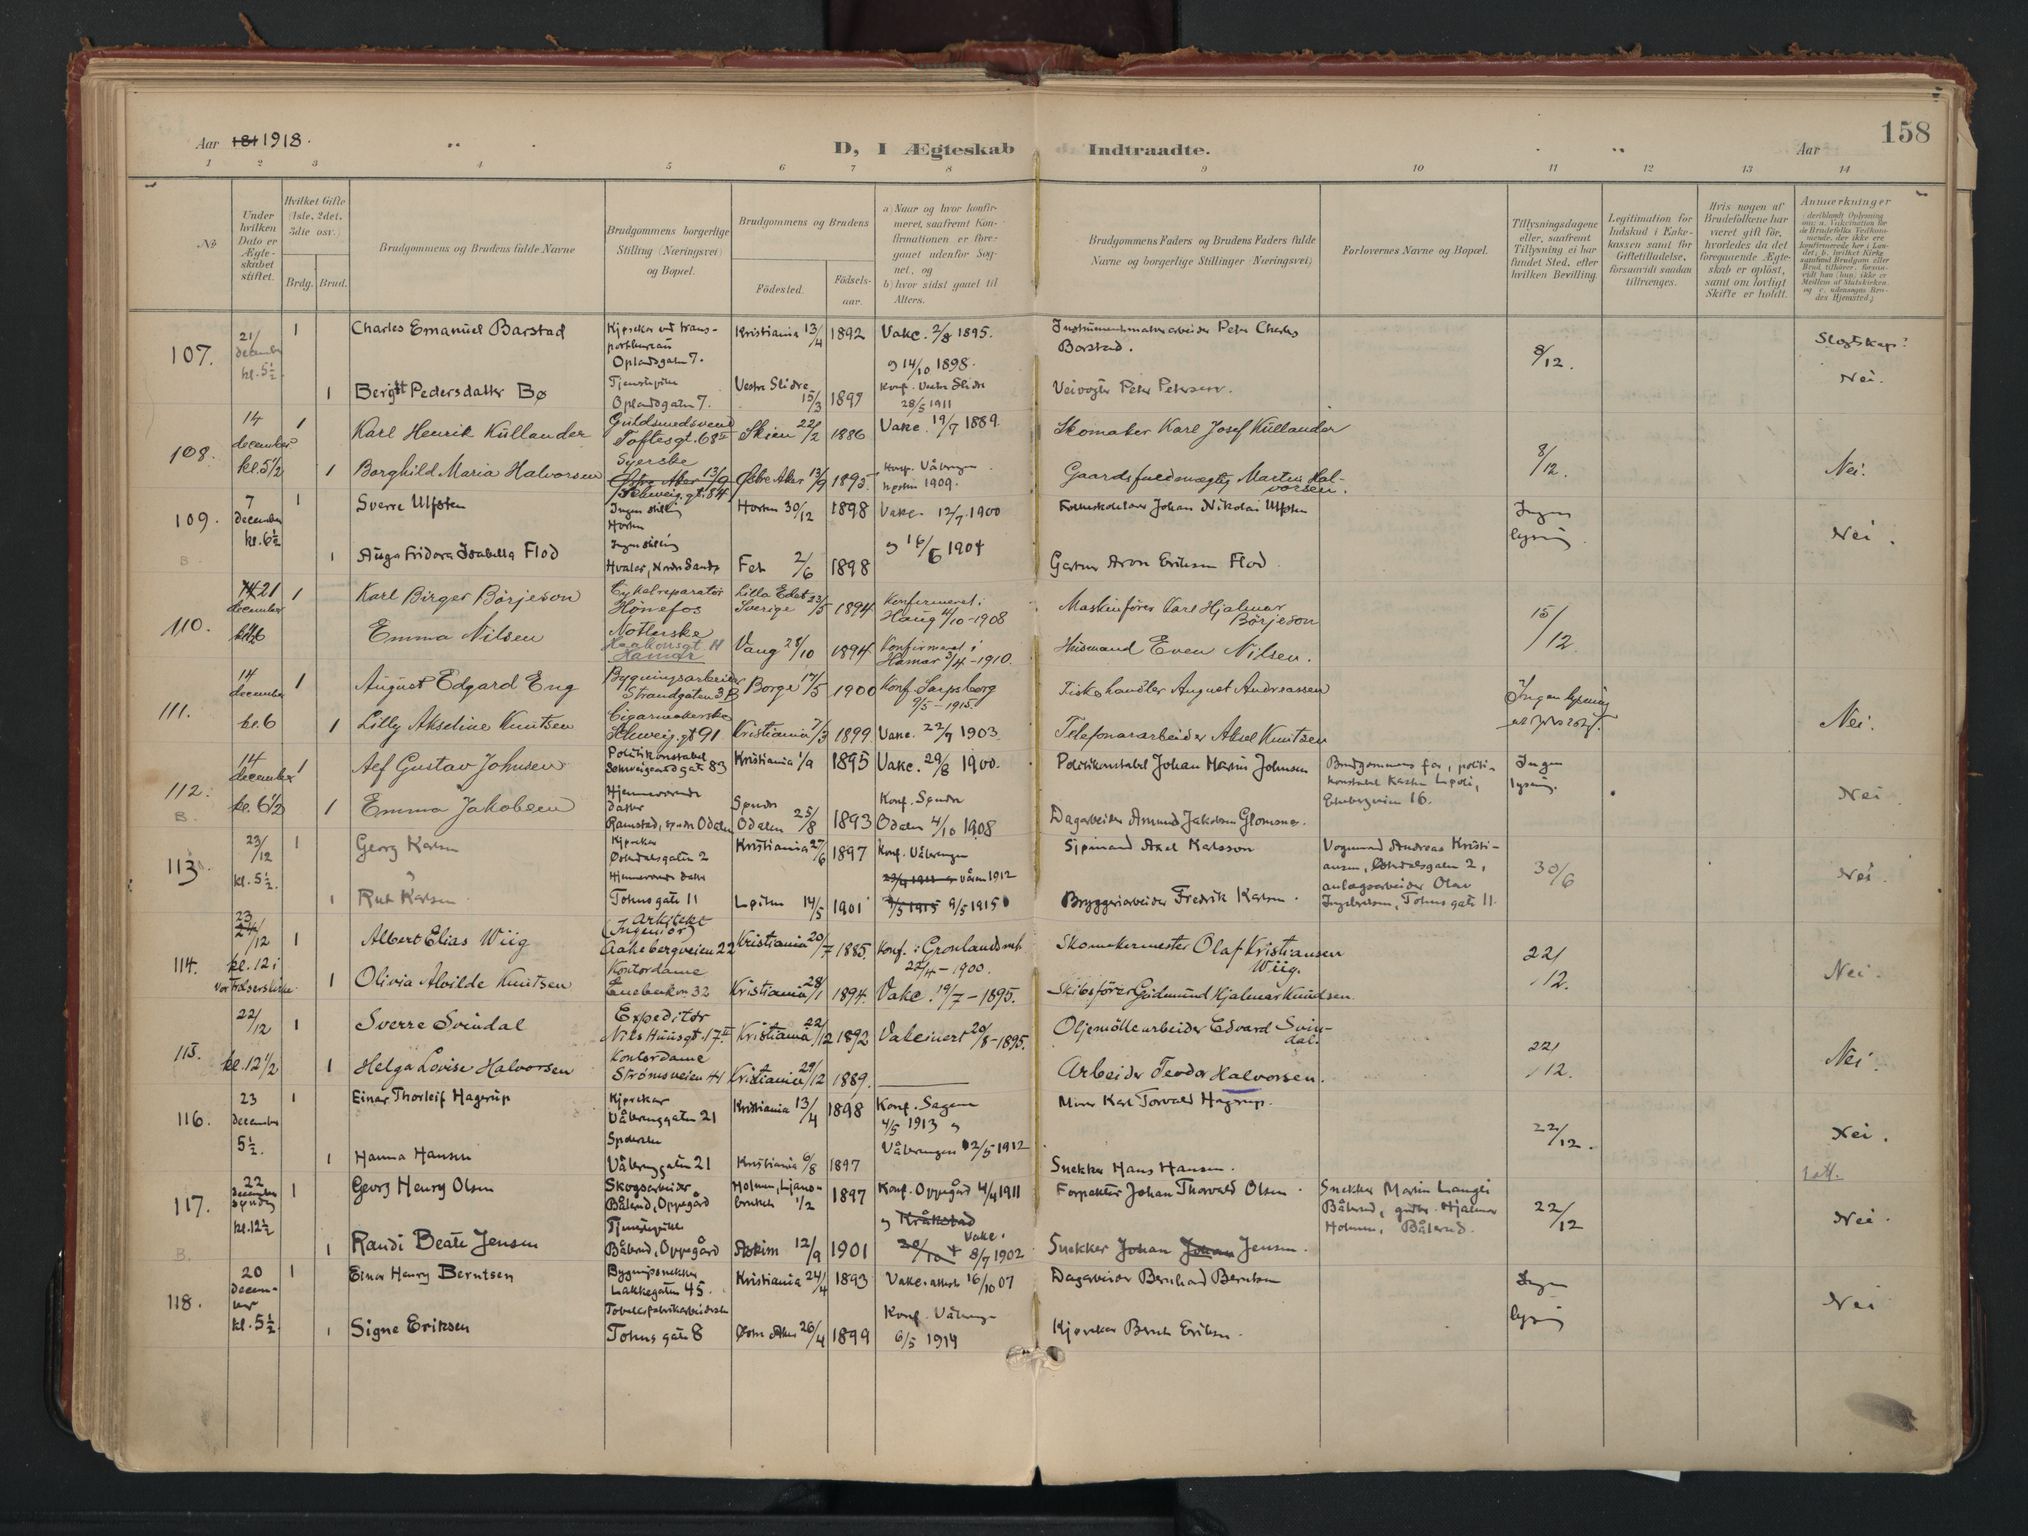 Aar 181 1918.
D, I Ægteskab Indtraadte.
Aar
158
1 2 3 4 5 6 7 8 9 10 11 12 13 14
No
Under hvilken Dato er Ægteskabet stiftet.
Hvilket Gifte (1ste, 2det, 3die osv.)
Brdg. Brud.
Brudgommens og Brudens fulde Navne
Brudgommens borgerlige Stilling (Næringsvei) og Bopæl.
Brudgommens og Brudens
Fødested. Fødsels-aar.
a) Naar og hvor konfirmeret, saafremt Konfirmationen er foregaaet udenfor Sognet, og
b) hvor sidst gaaet til Alters.
Brudgommens Faders og Brudens Faders fulde Navne og borgerlige Stillinger (Næringsvei)
Forlovernes Navne og Bopæl.
Tillysningsdagene eller, saafremt Tillysning ei har fundet Sted, efter hvilken Bevilling.
Legitimation for Indskud i Enkekassen samt for Giftetilladelse, forsaavidt saadan tiltrænges.
Hvis nogen af Brudefolkene har været gift før, hvorledes da det foregaaende Ægteskab er opløst, samt om lovligt Skifte er holdt.
Anmærkninger
107. 21/ december kl. 5½
1 Charles Emanuel Barstad
Oplandsgaten 7.
Kristiania 13/4 1892
Vakc. 2/8 1895.
14/10 1898.
Instrumentmakerarbeider Peter Charles Barstad.
8/12.
Nei.
1 Bergitt Pedersdatter Bø
Tjenestepike Oplandsgaten 7.
Vestre Slidre 15/3
Konf. Vestre Slidre 28/5 1911
Veivogter Peter Petersen.
108. 14 december kl. 5½
1 Karl Henrik Kullander
Guldsmedsvend Toftesgt. 68 II
Skien 22/2 1886
Vakc. 19/7 1889.
Skomaker Karl Josef Kullander
8/12.
Nei.
1 Borghild Maria Halvorsen
Syerske
Schweig. gt. 84
Østre Aker 13/9 1895.
Konf. Våleringen høsten 1909.
Gaardsfuldmægtig Martin Halvorsen.
109. 7 december kl. 6½
1 Sverre Ulfsten
Ingen stilling Horten
Horten 30/12 1898
Vakc. 12/7 1900
Johan Nikolai Ulfsten
Ingen lysning
Nei.
B.
1 Auga Fridora Isabella Flod
Ingen stilling
Hvaler, Nordre Sandø
Fet 2/6 1898
16/6 1904
Gartner Aron Eriksen Flod.
110. 21 december
1 Karl Birger Börjeson
Cykelreparatør Hønefos
Lilla Edet Sverige 23/5 1894
Konfirmeret i Haug 4/10-1908
Maskinfører Karl Hjalmar Börjeson
15/12
Emma Nilsen
Haakonsgt. 11 Hamar
Vang 28/10 1894
Konfirmeret i Hamar 3/4-1910.
Husmand Even Nilsen.
111. 14 december kl. 6
1 August Edgard Eng
Bygningsarbeider Strandgaten 3 B
Borge 17/5 1900
Konf. Sarpsborg 9/5-1915.
Fiskehandler August Andreassen
Ingen lysning
Nei.
1 Lilly Akseline Knutsen
Cigarmakerske Schweig. gt 91
Kristiania 7/3 1899
Vakc. 22/7 1903
Telefonarbeider Aksel Knutsen
112. 14 december kl. 6½
1 Alf Gustav Johnsen
Politikonstabel Schweigaardsgate 83
Kristiania 1/9 1895
Vakc. 29/8 1900.
Politikonstabel Johan Marius Johnsen
Ekebergveien 16.
Ingen lysning.
Nei
B.
1 Emma Jakobsen
Hjemmeværende datter
Ramstad, søndre Odalen
Søndre Odalen 25/8 1893
Konf. Søndre Odalen 4/10 1908
Dagarbeider Amund Jakobsen Glomsne.
113. 23/12 kl. 5½.
1 Georg Karlsen
Kjøreker Østerdalsgaten 2
Kristiania 27/6 1897
Konf. Våleringen våren 1912
Sjømand Axel Karlsson
Vognmand Andreas Kristiansen, Østerdalsgaten 2,
anlægsarbeider Olav Ingebretsen, Tøiens gate 11.
30/6
Nei.
1 Rut Karlsen
Hjemmeværende datter Tøiens gate 11
Løiten 14/5 1901
9/5 1915
Bryggeriarbeider Fredrik Karlsen.
114. 23/12 kl. 12 i Vor Frelsers kirke
1 Albert Elias Wiig
Arkitekt (Ingeniør) Aakebergveien 22
Kristiania 20/7 1885.
Konf. i Grønlands mh. 22/4-1900.
Skomakermester Olaf Kristiansen Wiig.
22/12.
Nei.
1 Olivia Alvilde Knutsen
Kontordame Enebakvn 32
Kristiania 28/1 1894.
Vakc. 19/7-1895.
Skibsfører Gudmund Hjalmar Knudsen.
115. 22/12 kl. 12½
1 Sverre Svindal
Expeditør Nils Huusgt. 17 II
Kristiania 22/12 1892
Vakcinert 20/8-1895.
Oljemöllearbeider Edvard Svindal.
22/12.
Nei.
1 Helga Lovise Halvorsen
Kontordame Strømsveien 41
Kristiania 29/12 1889.
Arbeider Teodor Halvorsen.
116. 23 december 5½.
1 Einar Thorleif Hagerup
Kjøreker Våleringgaten 21
Kristiania 13/4 1898
Konf. Sagene 4/5 1913
Murer Karl Torvald Hagerup.
22/12.
Nei.
1 Hanna Hansen
Våleringgaten 21
Kristiania 6/8 1897
Våleringen 2/5 1912
Snekker Hans Hansen.
117. 22 december søndag kl. 12½
1 Georg Henry Olsen
Skogsarbeider Bålerud, Oppegård
Holmen, Ljansbruket 1/2 1897
Konf. Oppegård 4/4 1911
Forpakter Johan Thorvald Olsen.
Snekker Martin Langli Bålerud, gårdbr. Hjalmar Holmen, Bålerud.
22/12
Nei.
B.
1 Randi Beate Jensen
Tjenestepike Bålerud, Oppegård
Askim 12/9 1901
Kråkstad
Vakc. 8/7 1902
Snekker Johan Johan Jensen.
118. 20 december kl. 5½
1 Einar Henry Berntsen
Bygningssnekker Lakkegaten 45.
Kristiania 24/4 1893
Vakc. attest 16/10 07
Dagarbeider Bernhard Berntsen
Ingen lysning
Nei
1 Signe Eriksen
Tobaksfabrikarbeiderske Tøiens gate 8
Østre Aker 26/4 1899
Konf. Vålerengen 6/5 1914
Kjøreker Bernt Eriksen.